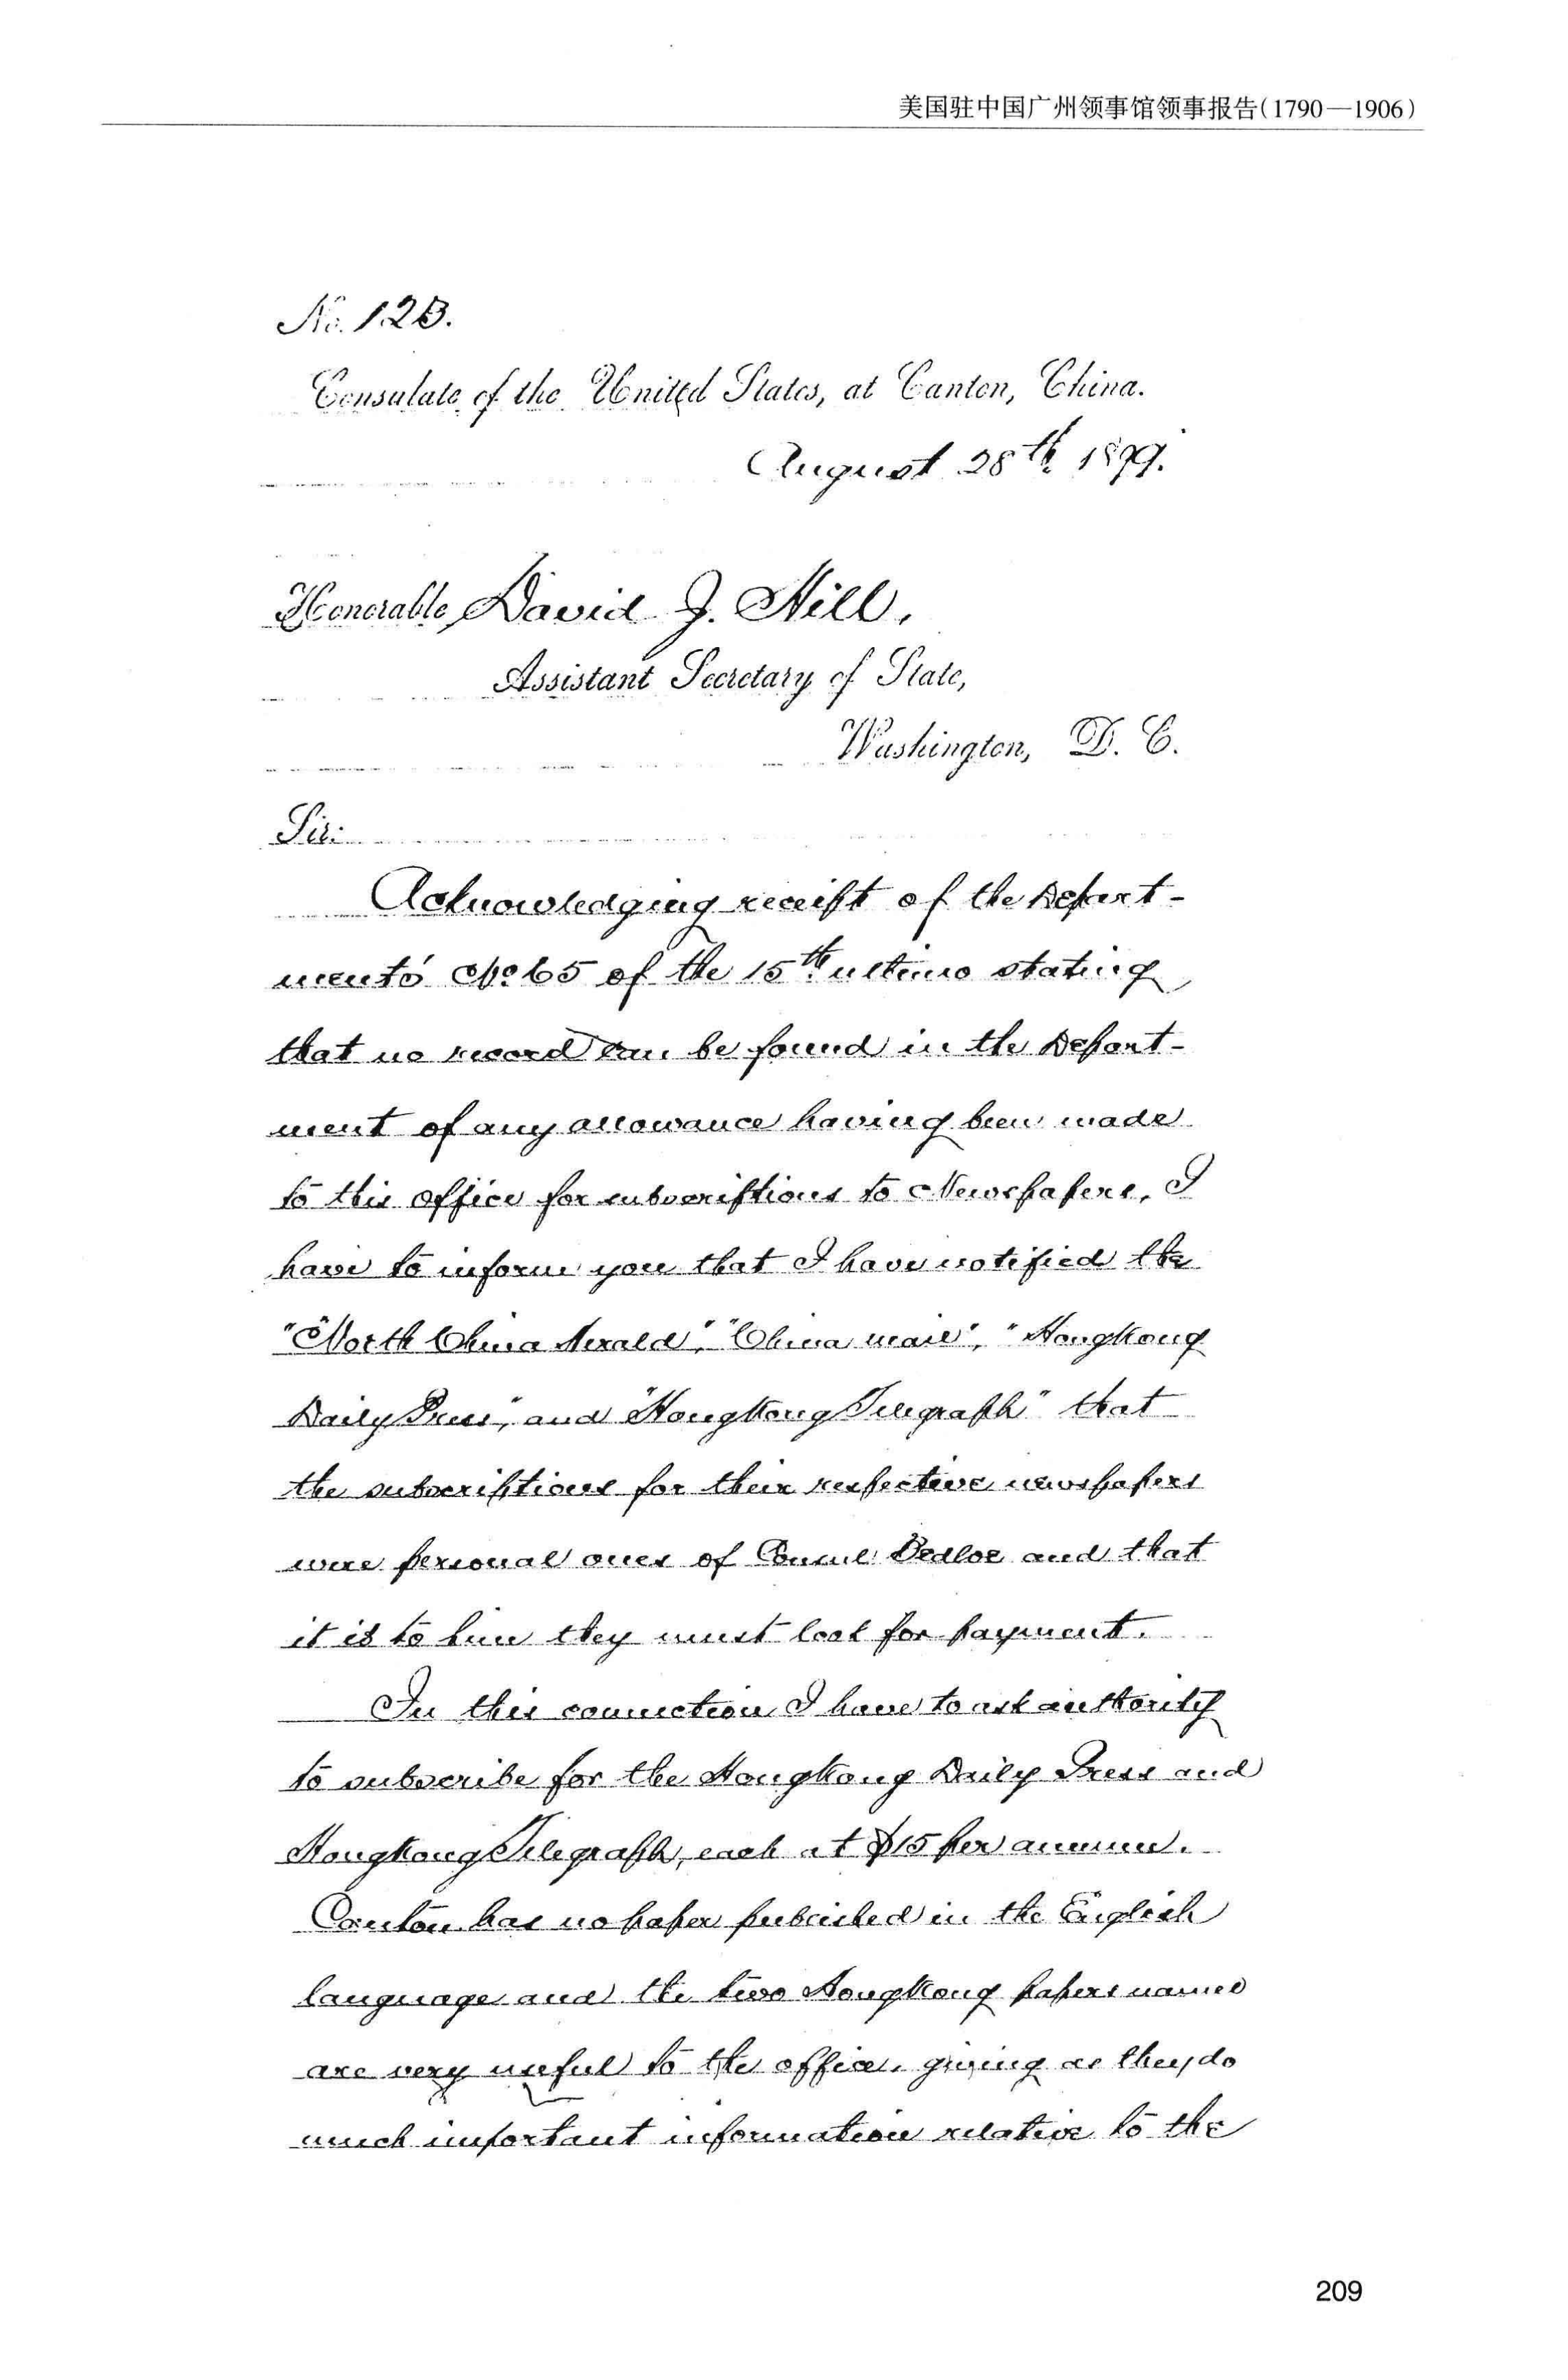 美国驻中国广州领事馆领事报告(1790—1906)
No. 123.
Consulate of the United States, at Canton, China.
August 28th 1899.
Honorable David J. Hill,
Assistant Secretary of State,
Washington, D. C.
Sir:
Acknowledging receipt of the Depart-
ment's No 65 of the 15th ultimo stating
that no record can be found in the Depart-
ment of any allowance having been made
to this office for subscriptions to Newspapers, I
have to inform you that I have notified the
"North China Herald", "China mail", "HongKong
Daily Press", and "HongKong Telegraph" that
the subscriptions for their respective newspapers
were personal ones of Consul Bedloe and that
it is to him they must look for payment.
In this connection I have to ask authority
to subscribe for the HongKong Daily Press and
HongKong Telegraph, each at $15 per annum.
Canton has no paper published in the English
language and the two HongKong papers named
are very useful to the office, giving as they do
much important information relative to the
209